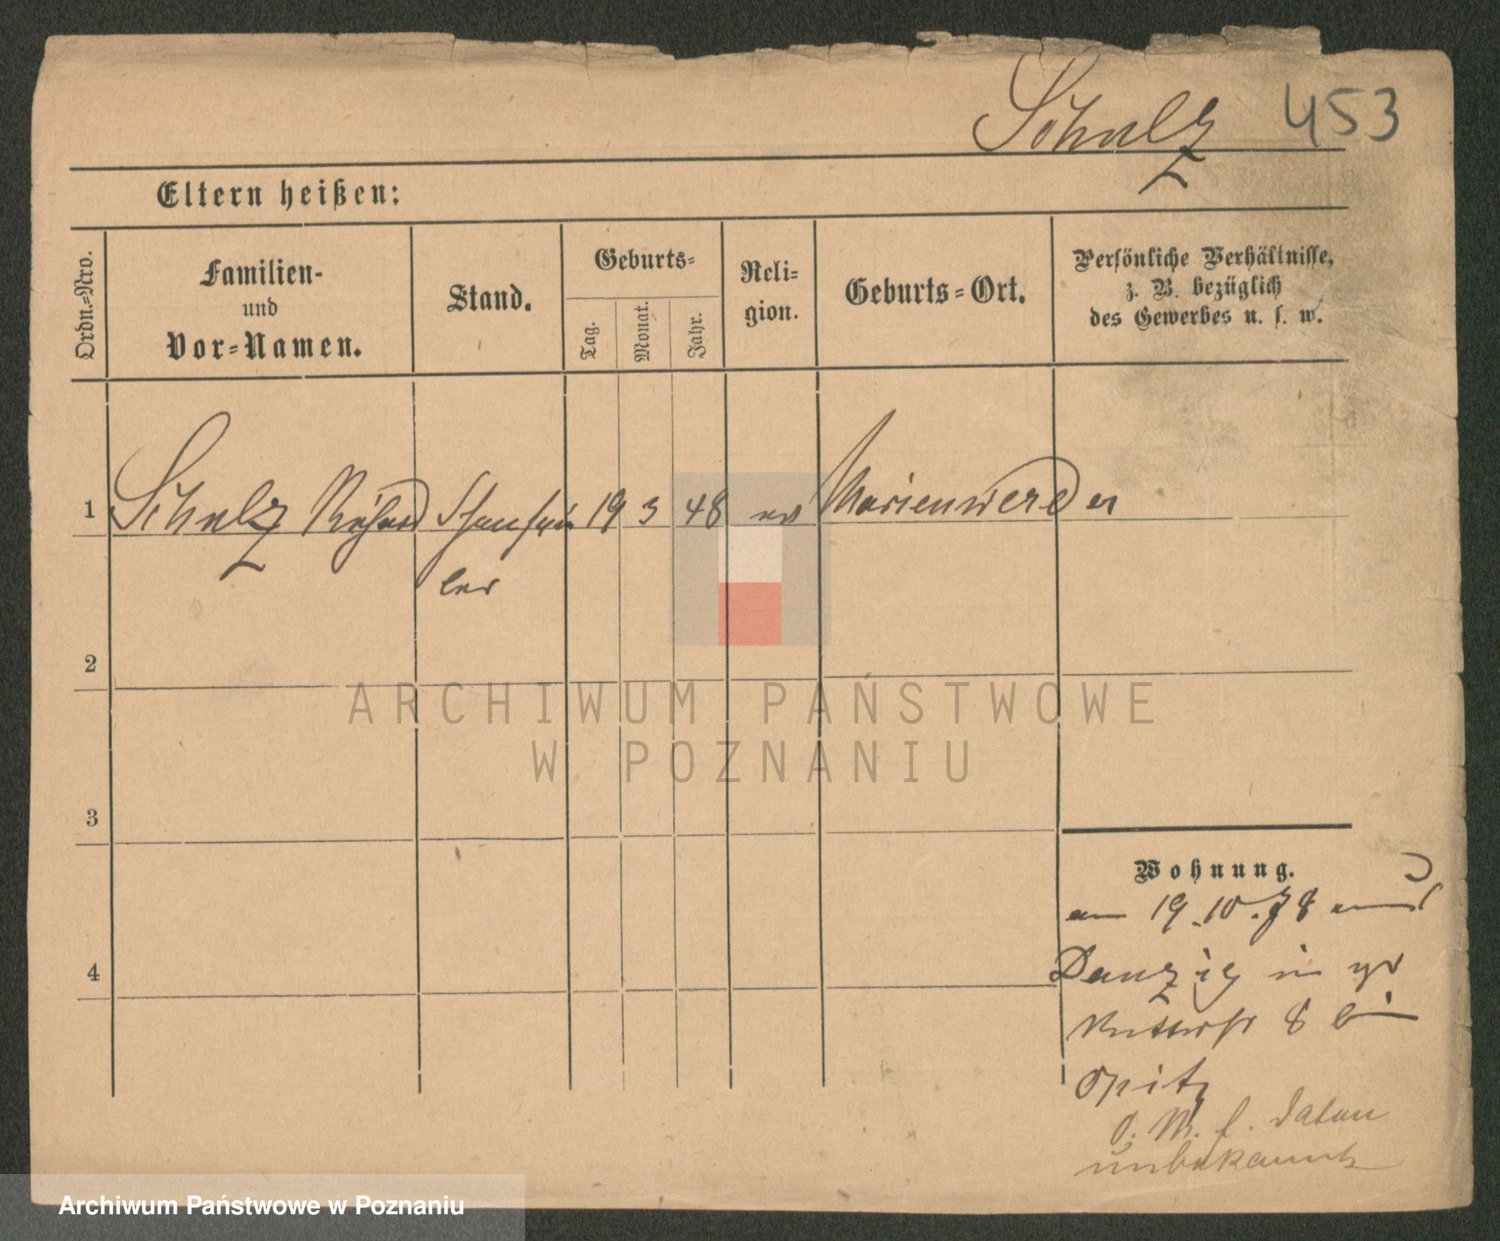 Schulz 453
Eltern heißen:
Ordn.=Nro.
Familien-
und
Vor=Namen.
Stand.
Geburts=
Tag.
Monat.
Jahr.
Reli-
gion.
Geburts=Ort.
Persönliche Verhältnisse,
z. B. bezüglich
des Gewerbes u. s. w.
1 Schulz Richard 19 3 48 ev Marienwerder
ler
2
3
4
Wohnung.
am 19.10.78
Danzig in
8 bei
Opitz
unbekannt
ARCHIWUM PAŃSTWOWE
W POZNANIU
Archiwum Państwowe w Poznaniu